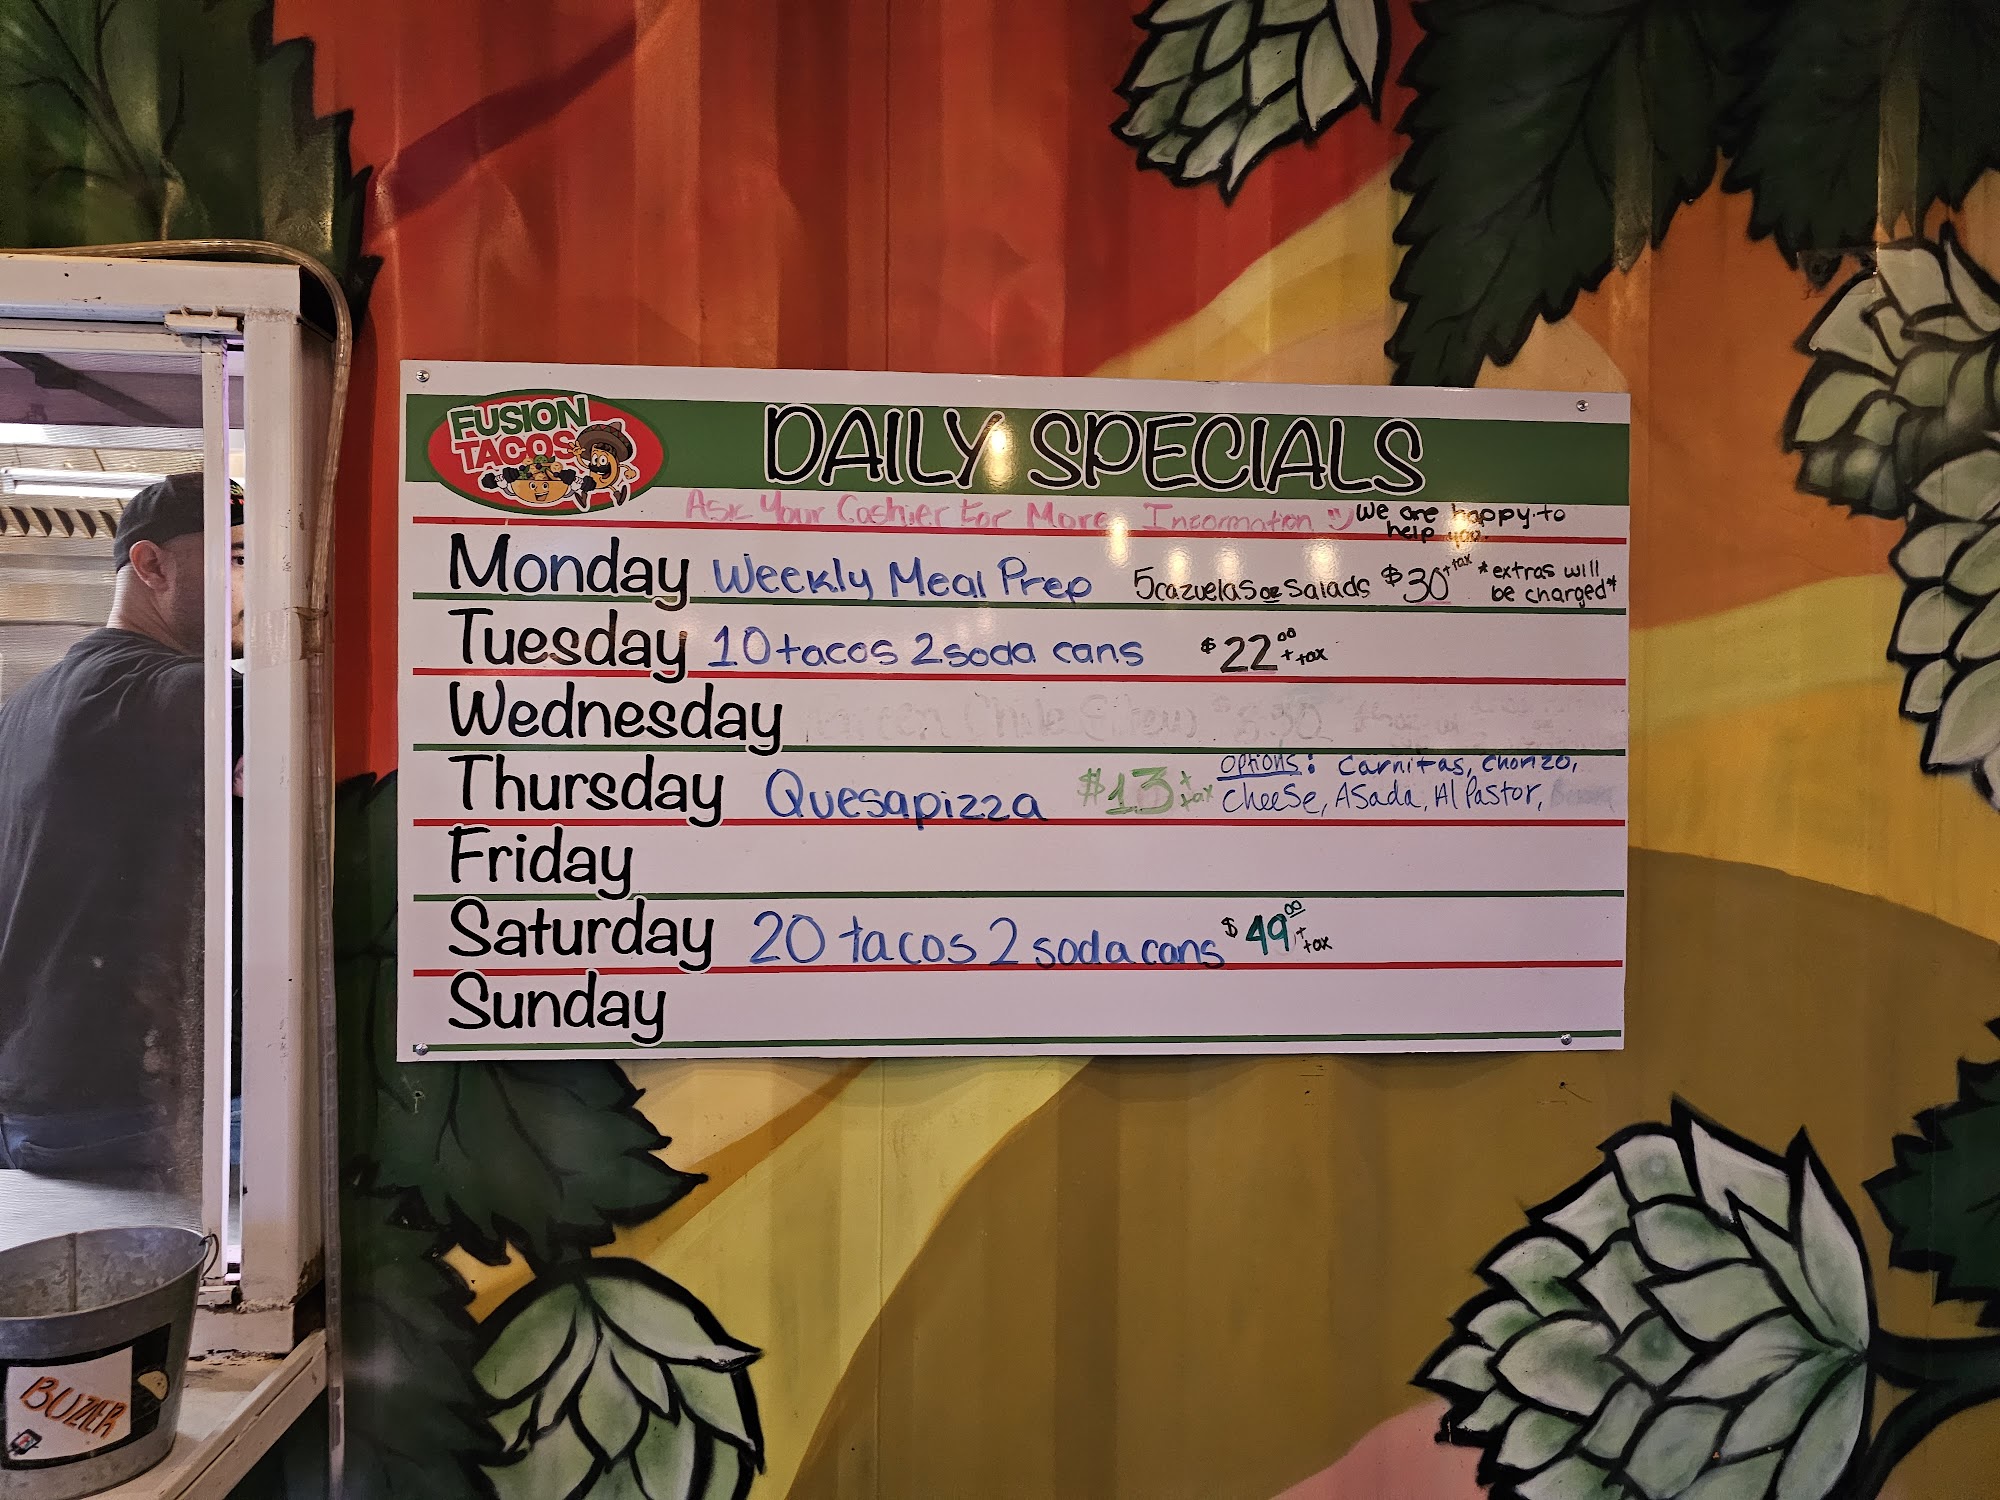 FUSION
TACOS
DAILY SPECIALS
Ask Your Cashier For More Information :) We are happy to
help you.
Monday Weekly Meal Prep 5 cazuelas or salads $30 + tax *extras will
be charged*
Tuesday 10 tacos 2 soda cans $22.00 + tax
Wednesday Green Chile
Thursday Quesapizza $13 + tax Options: Carnitas, chorizo,
cheese, Asada, Al Pastor,
Friday
Saturday 20 tacos 2 soda cans $49.00 + tax
Sunday
BUZZER